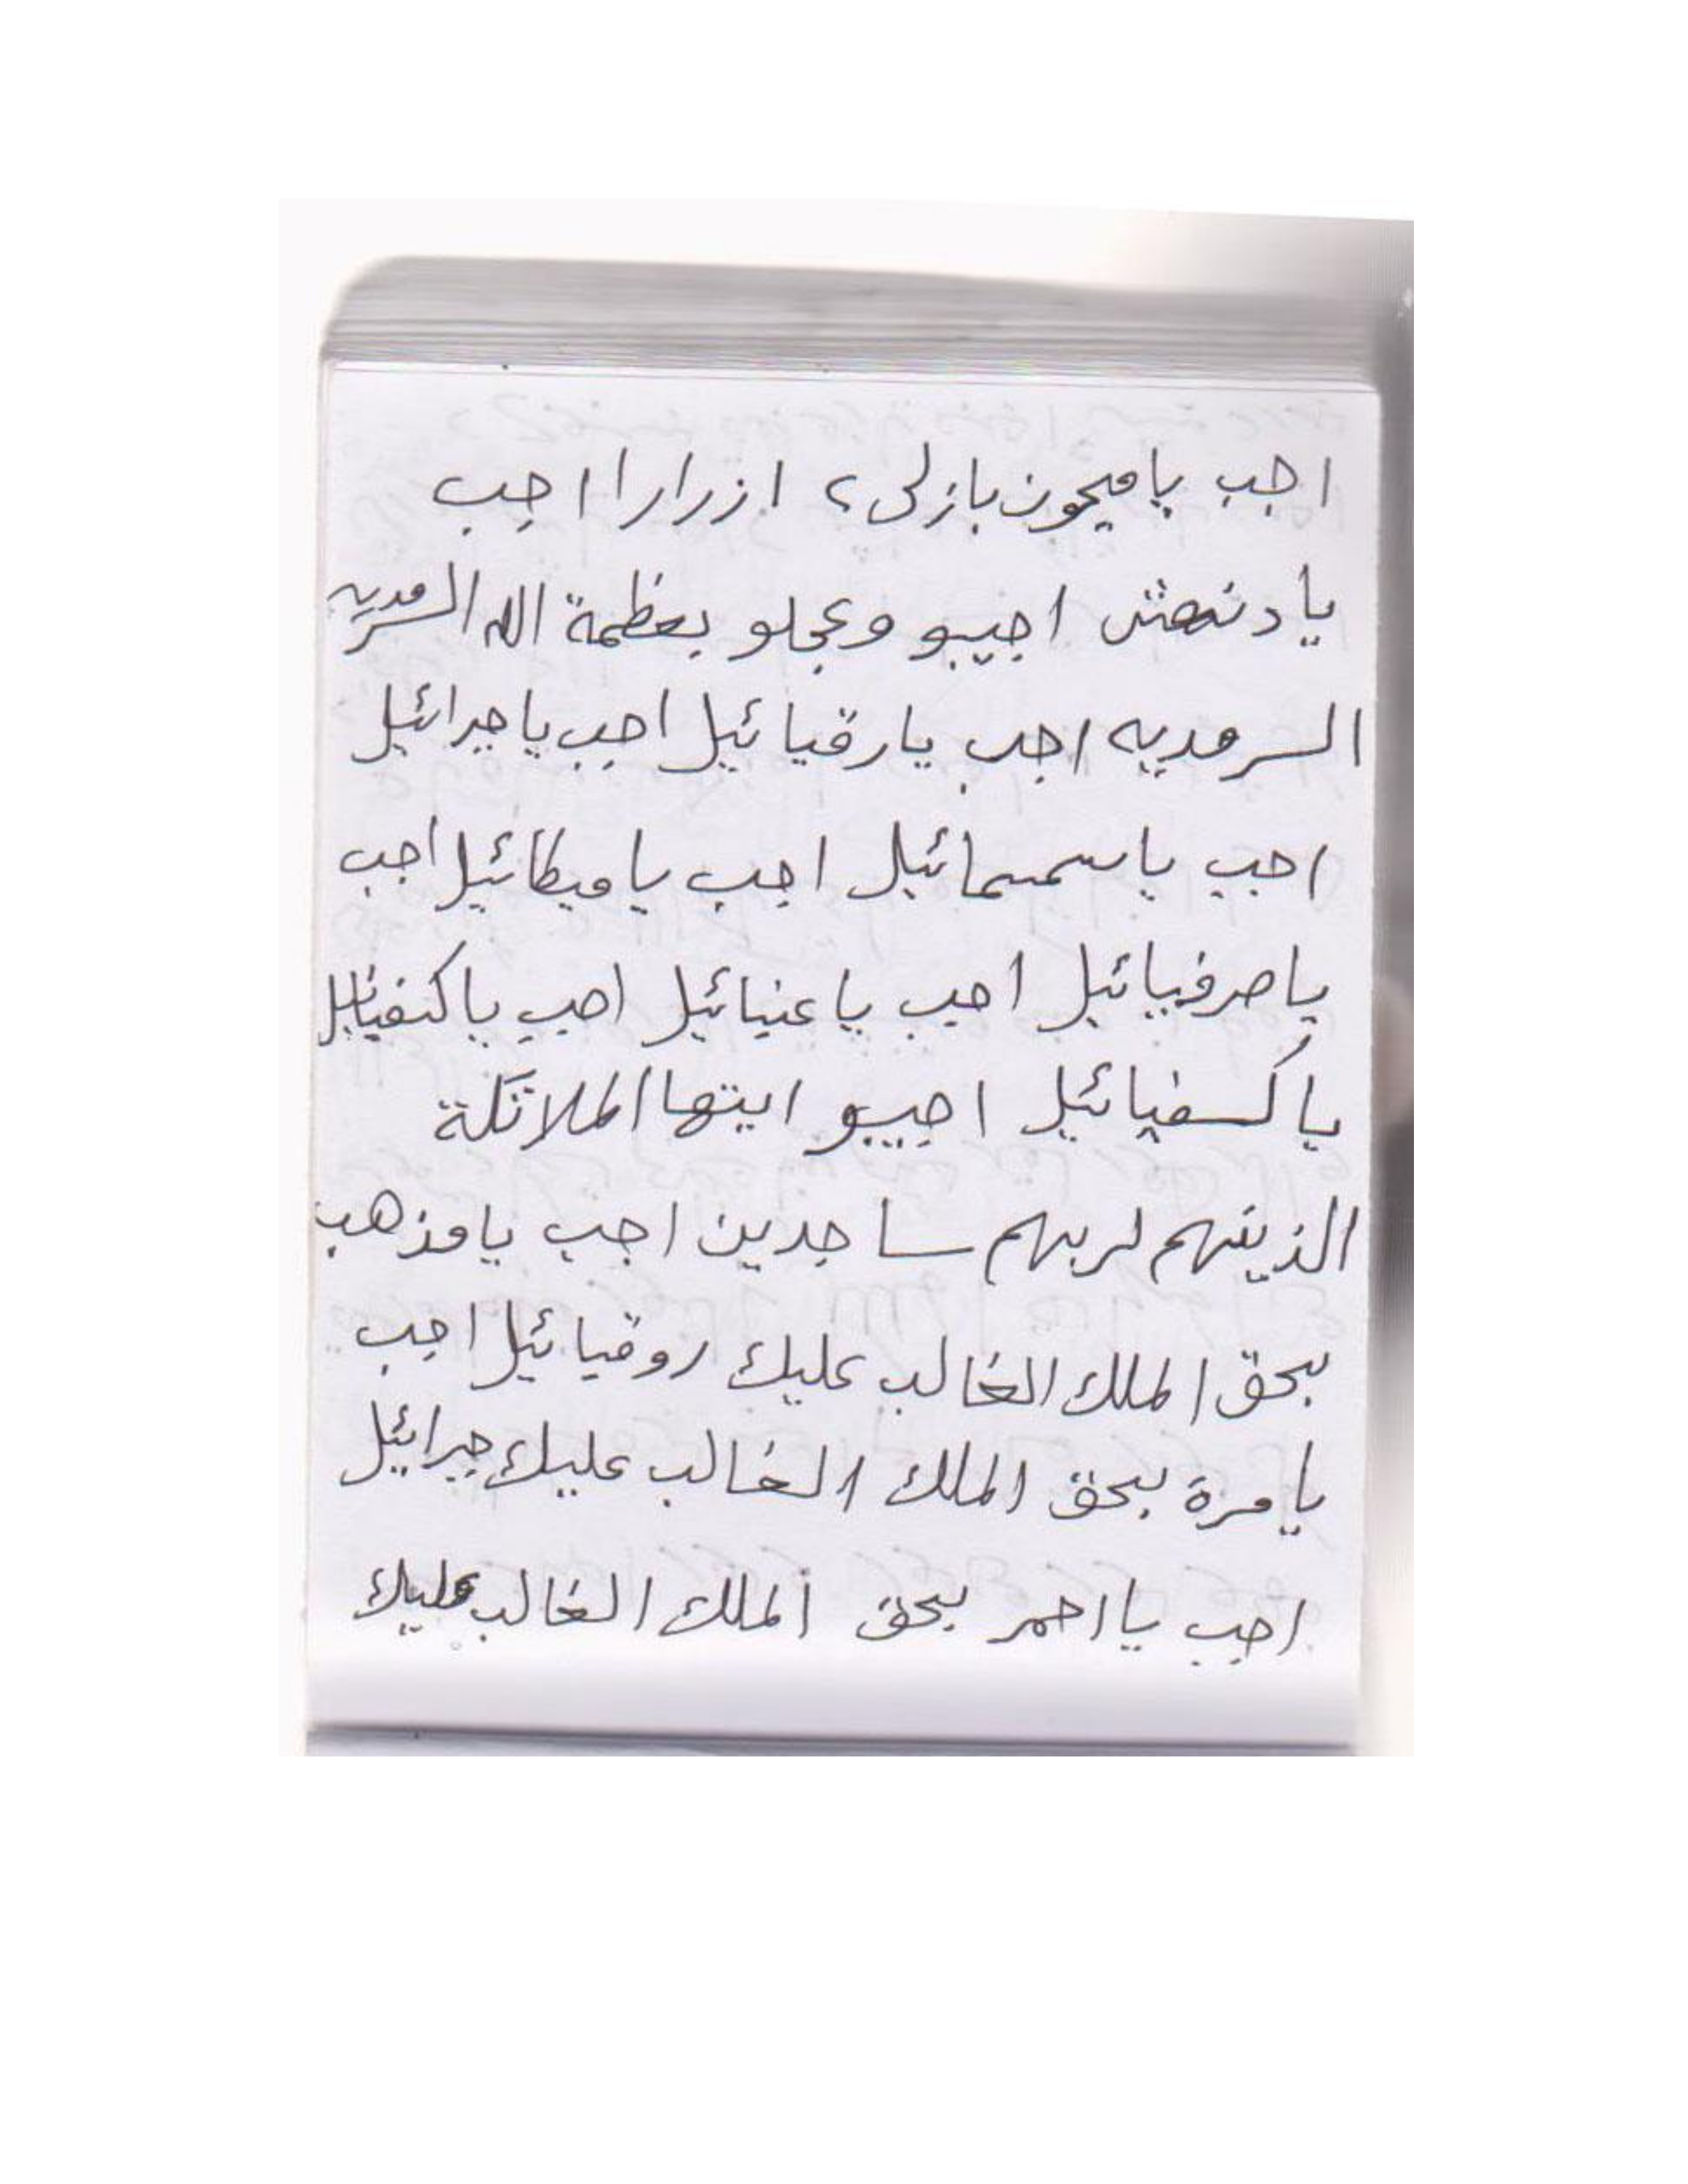 اجب يا ميمون بازلى ء ازرارا اجب
يا دنهش اجيبو وعجلو بعظمة الله السرمديه
السرمديه اجب يا رقيائيل اجب يا جبرائيل
اجب يا سمسمائيل اجب يا ميطائيل اجب
يا صرفيائيل اجب يا عنيائيل اجب
يا كسفيائيل اجيبو ايتها الملائكة
الذينهم لربهم ساجدين اجب يا مذهب
بحق الملك الغالب عليك روقيائيل اجب
يا مرة بحق الملك الغالب عليك جبرائيل
اجب يا احمر بحق الملك الغالب عليك